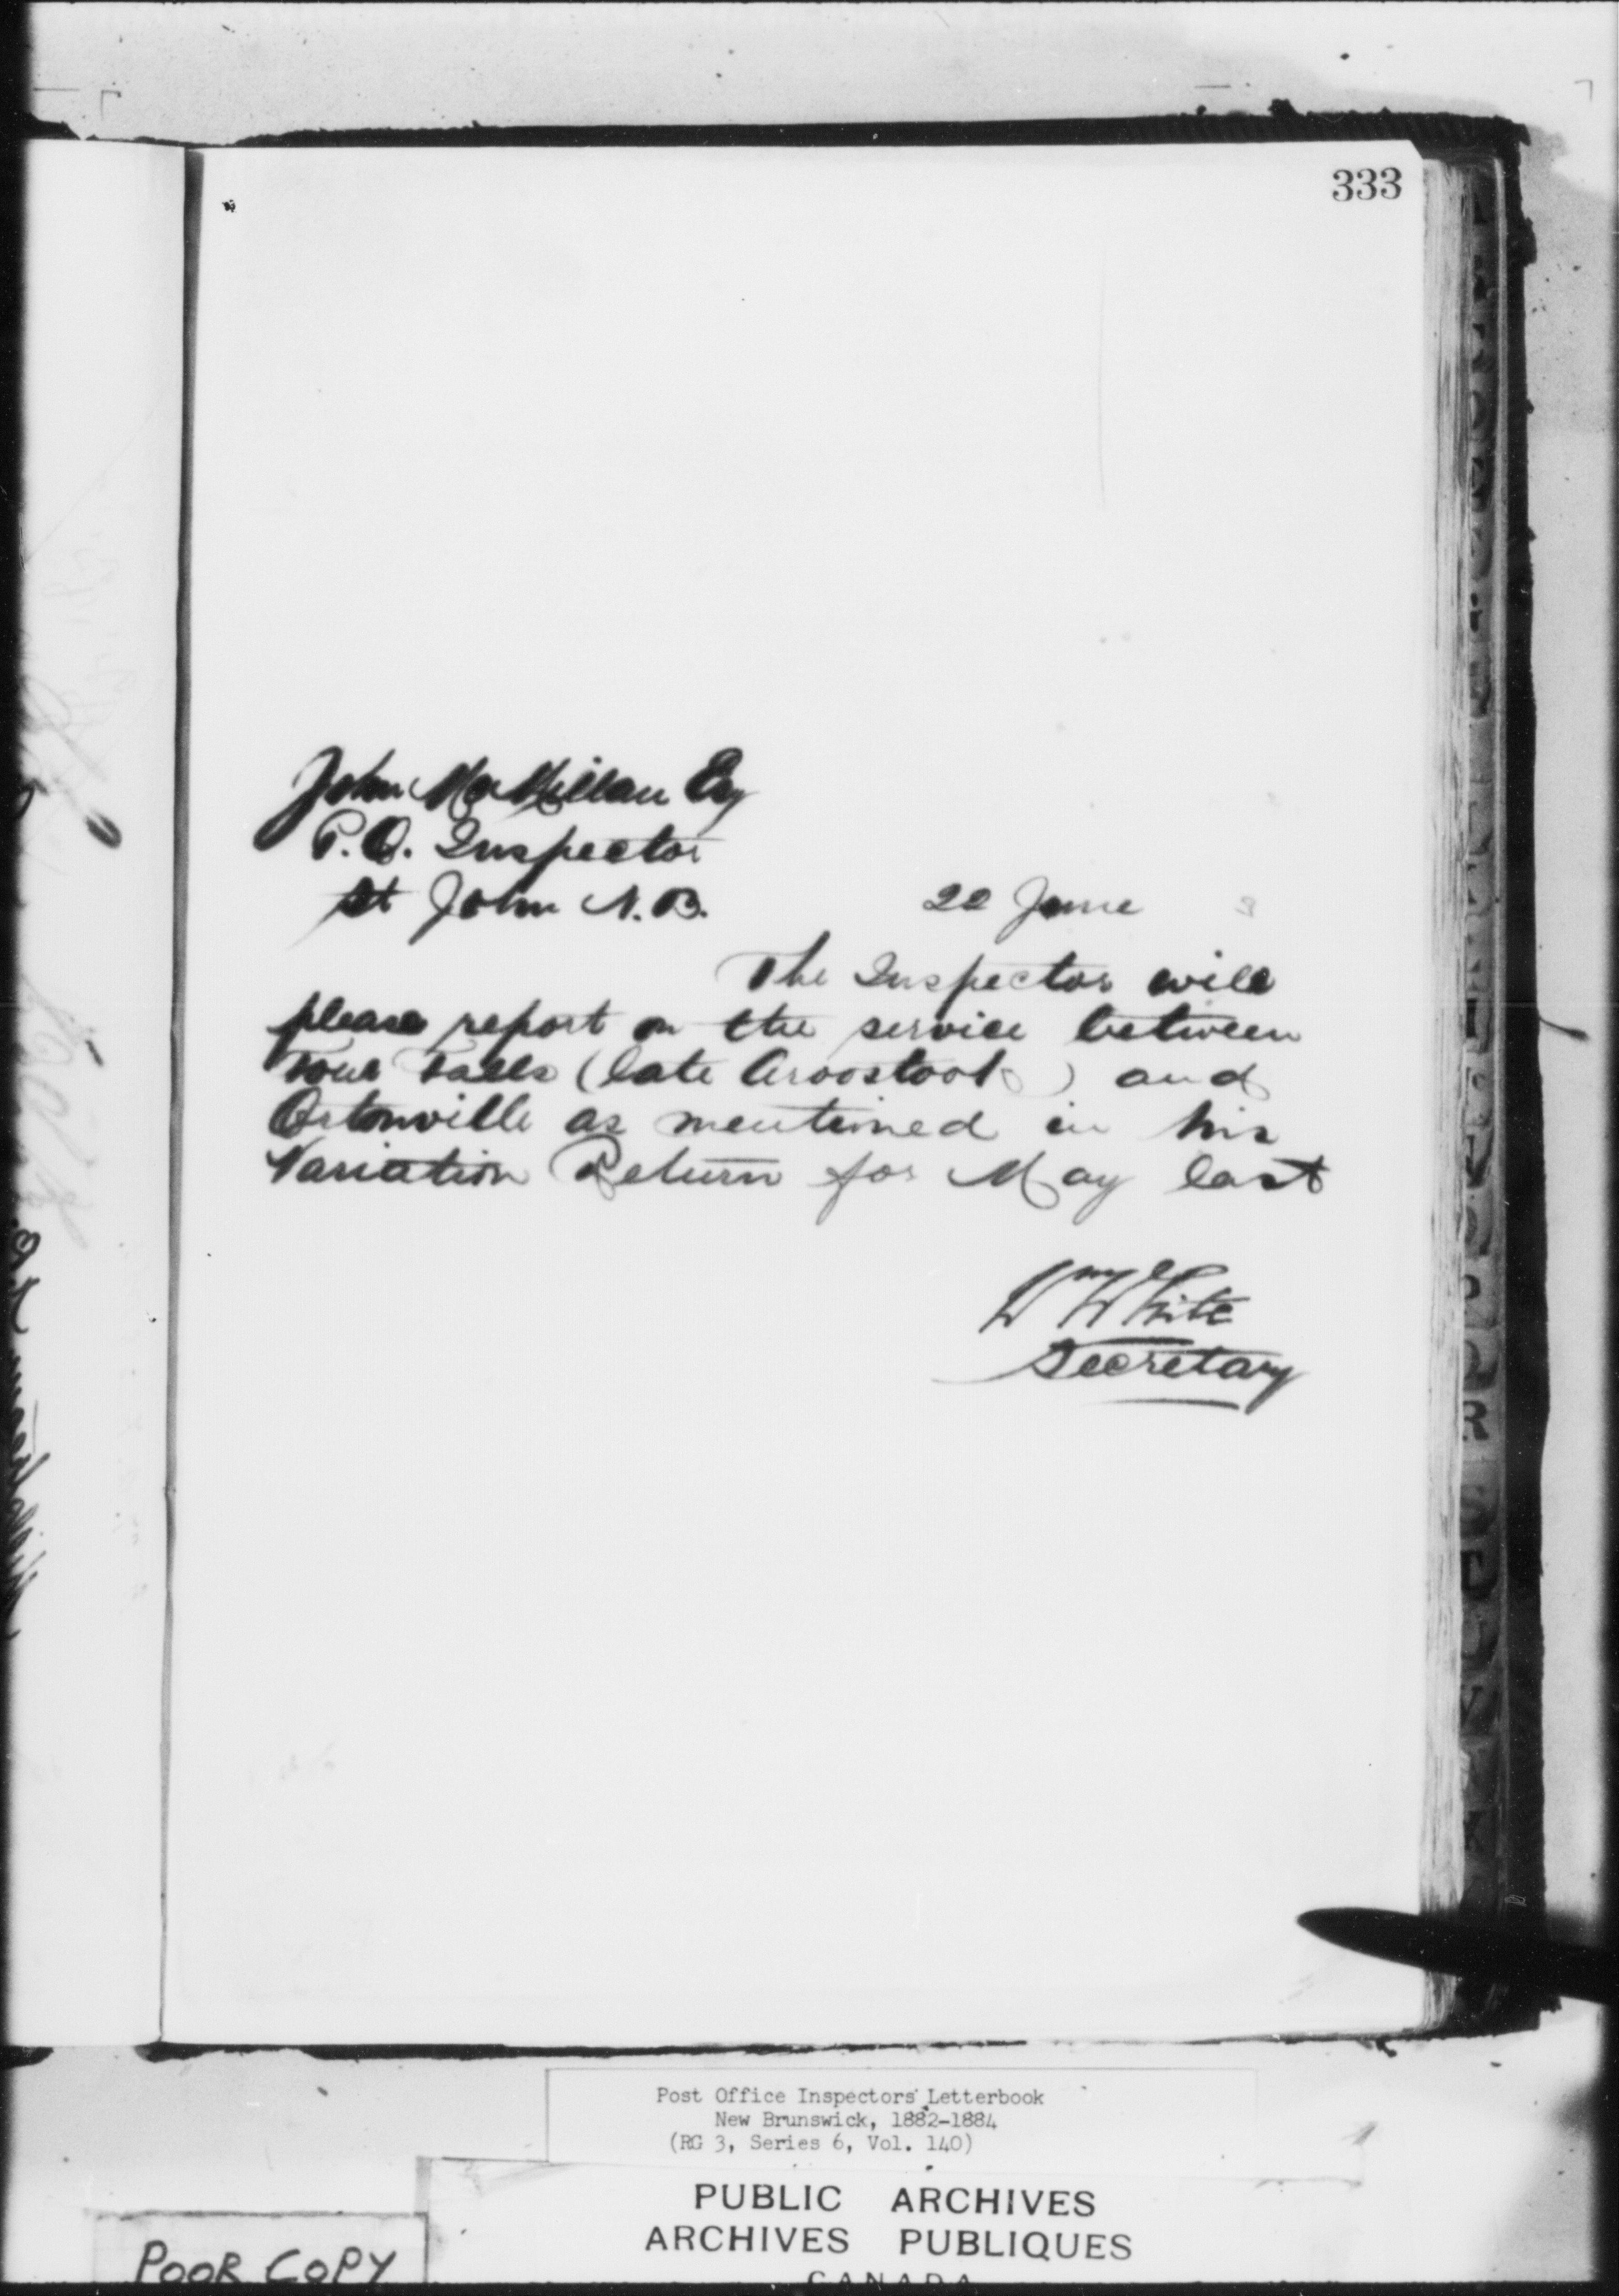 333
John McMillan Esq
P.O. Inspector
St John N.B.
22 June 3
The Inspector will
please report on the service between
Four Falls (late Aroostook) and
Ortonville as mentioned in his
Variation Return for May last
Wm White
Secretary
Post Office Inspectors' Letterbook
New Brunswick, 1882-1884
(RG 3, Series 6, Vol. 140)
PUBLIC ARCHIVES
ARCHIVES PUBLIQUES
CANADA
POOR COPY